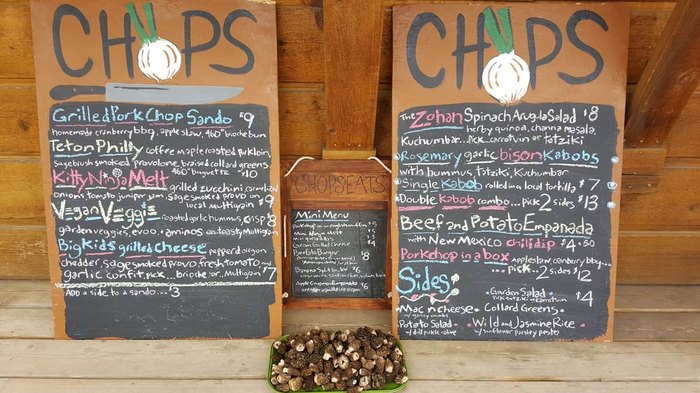 CHOPS
Grilled Pork Chop Sando $9
homemade cranberry bbq, apple slaw, 460° brioche bun
Teton Philly coffee maple roasted porkloin,
sagebrush smoked provolone, braised collard greens
460° baguette $10
Kitty Ninja Melt grilled zucchini, caramelized
onions, tomato juniper jam, sage smoked provo on
local multigrain $9
Vegan Veggie roasted garlic hummus, crisp $8
garden veggies, evoo + aminos on toasty Multigrain
Big Kids grilled cheese pepper d oregon
chedder, sage smoked provo fresh tomato
garlic confit pick... brioche or.. Multigrain $7
ADD a side to a sando...3
CHOPSEATS
Mini Menu
CHOPS
The Zohan Spinach Arugula Salad $8
herby quinoa, channa masala,
Kuchumbar... pick.. carrotivan or tatziki
Rosemary garlic bison Kabobs
with hummus, tatziki, Kuchumbar
Single Kabob rolled in a local tortilla $7
Double kabob combo... pick 2 sides $13
Beef and Potato Empanada
with New Mexico chili dip $4.50
Porkchop in a box apple slaw, cranberry bbq...
...pick 2 sides $12
Sides $4
• Garden Salad •
pick tatziki or carrotivan
Mac n cheese • Collard Greens •
Potato Salad • Wild and Jasmine Rice
w/ dill pickle + olive w/ sunflower parsley pesto